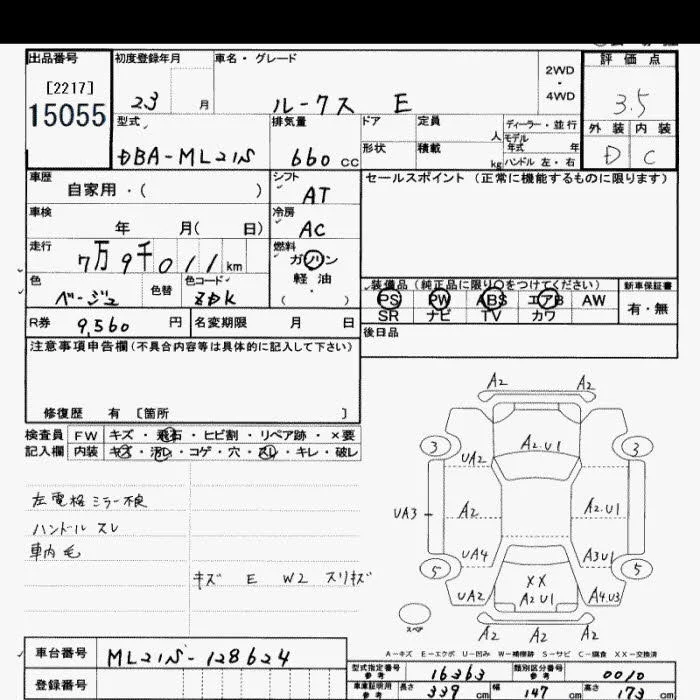 出品番号 初度登録年月 車名・グレード 評価点
[2217] 23 月 ルークス E 2WD ・ 4WD 3.5
15055
型式 排気量 ドア 定員 人 ディーラー・並行 外装 内装
DBA-ML21S 660 cc 形状 積載 kg モデル年式 年 ハンドル 左・右 D C
車歴 自家用・( ) シフト AT セールスポイント(正常に機能するものに限ります)
車検 年 月( 日) 冷房 AC
走行 7万9千011km 燃料 ガソリン
軽油
( ・ )
色 ベージュ 色替 色コード ZDK 装備品(純正品に限り○をつけてください) 新車保証書
PS PW ABS エアB AW 有・無
SR ナビ TV カワ
R券 9,560 円 名変期限 月 日 後日品
注意事項申告欄(不具合内容等は具体的に記入して下さい)
修復歴 有 [箇所 ]
検査員 FW キズ・飛石・ヒビ割・リペア跡・×要
記入欄 内装 キズ・汚れ・コゲ・穴・スレ・キレ・破レ
左電格ミラー不良
ハンドルスレ
車内毛
キズ E W2 スリキズ
A2 A2
3 A2.U1 3
UA2
UA3 A2 A2.U1
UA4 A3U1
5 XX 5
UA2 A2U1 A4U3
スペア A2 A2 A2
A-キズ E-エクボ U-凹み W-補修跡 S-サビ C-腐食 XX-交換済
車台番号 ML21S-128624
登録番号
型式指定番号 参考 16363 類別区分番号 参考 0010
車庫証明用 参考 長さ 339 cm 幅 147 cm 高さ 173 cm